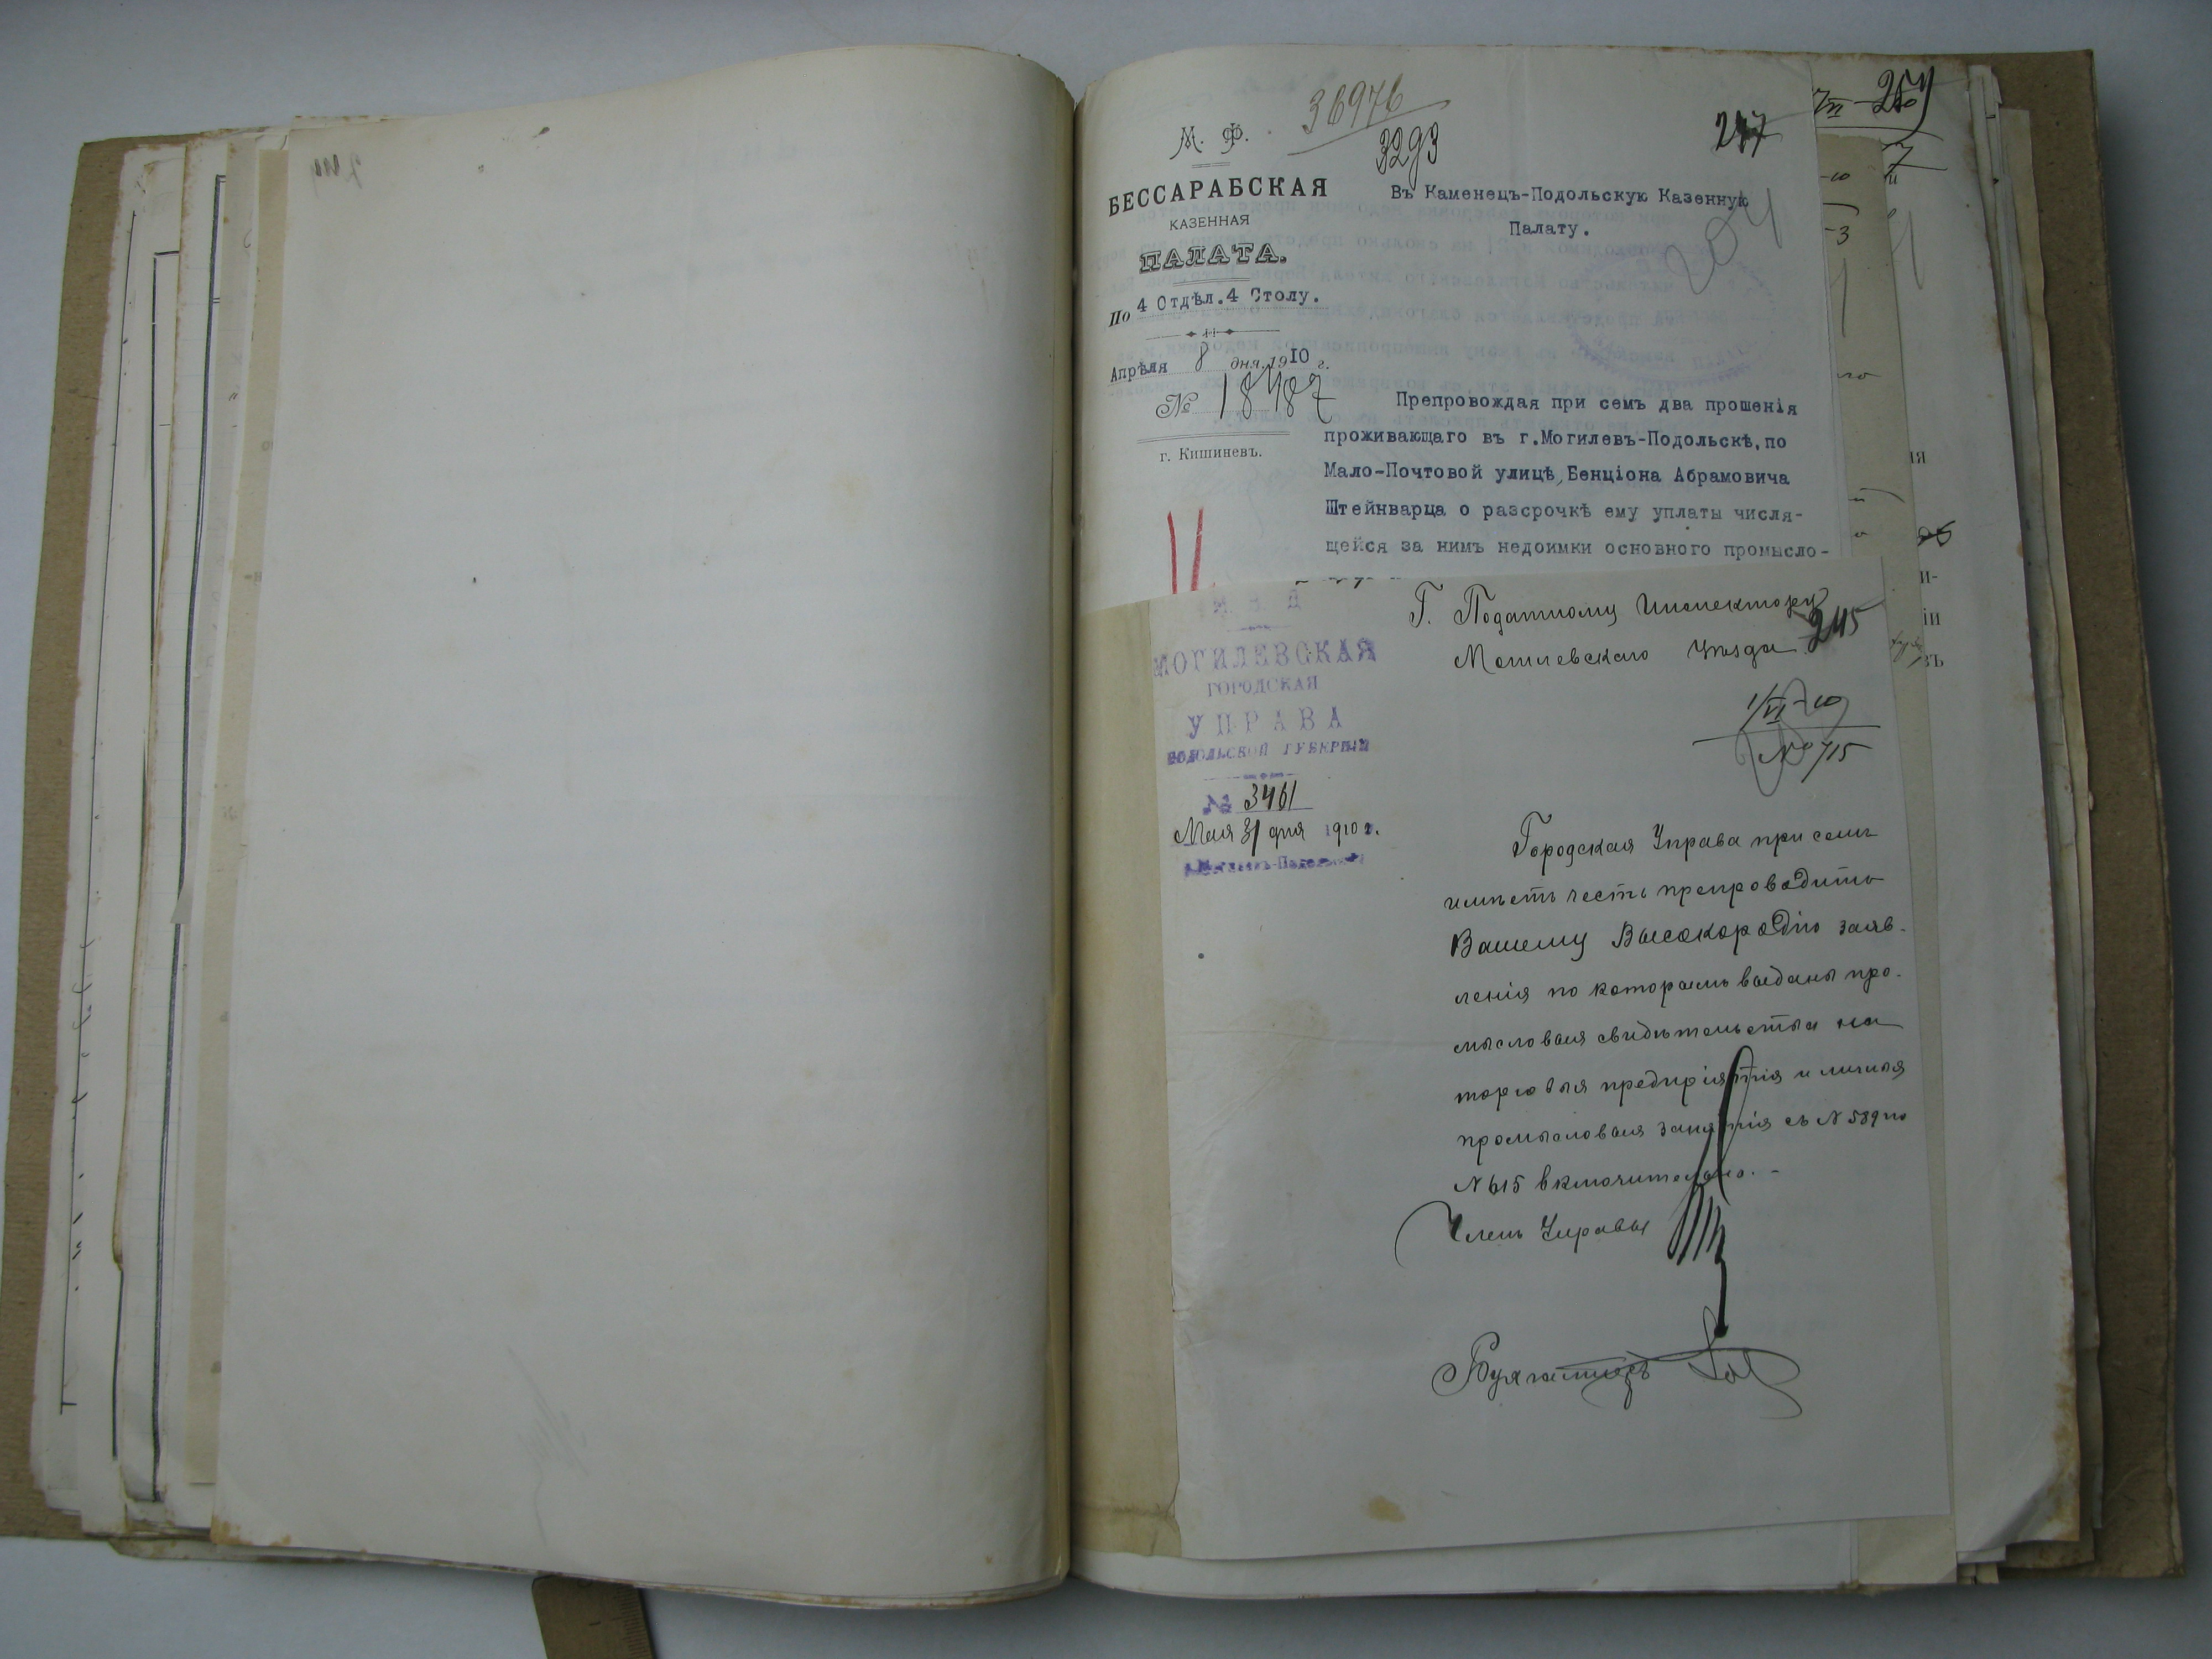 М. Ф.
36976
3293
247
БЕССАРАБСКАЯ
КАЗЕННАЯ
ПАЛАТА.
По 4 Отдѣл. 4 Столу.
Апрѣля 8 дня 1910 г.
№ 18487
г. Кишиневъ.
Въ Каменецъ-Подольскую Казенную
Палату.
204
Препровождая при семъ два прошенія
проживающаго въ г.Могилевъ-Подольскѣ, по
Мало-Почтовой улицѣ, Бенціона Абрамовича
Штейнварца о разсрочкѣ ему уплаты числя-
щейся за нимъ недоимки основного промысло-
М В Д
МОГИЛЕВСКАЯ
ГОРОДСКАЯ
УПРАВА
ПОДОЛЬСКОЙ ГУБЕРНІИ
№ 3461
Мая 31 дня 1910 г.
г. Могилевъ-Подольскъ
Г. Податному Инспектору
245
Могилевскаго Уѣзда
1/VI-10
№ 715
Городская Управа при семъ
имѣетъ честь препроводить
Вашему Высокородію заяв-
ленія по которымъ выданы про-
мысловыя свидѣтельства на
торговыя предпріятія и личныя
промысловыя занятія съ № 589 по
№ 615 включительно. -
Членъ Управы